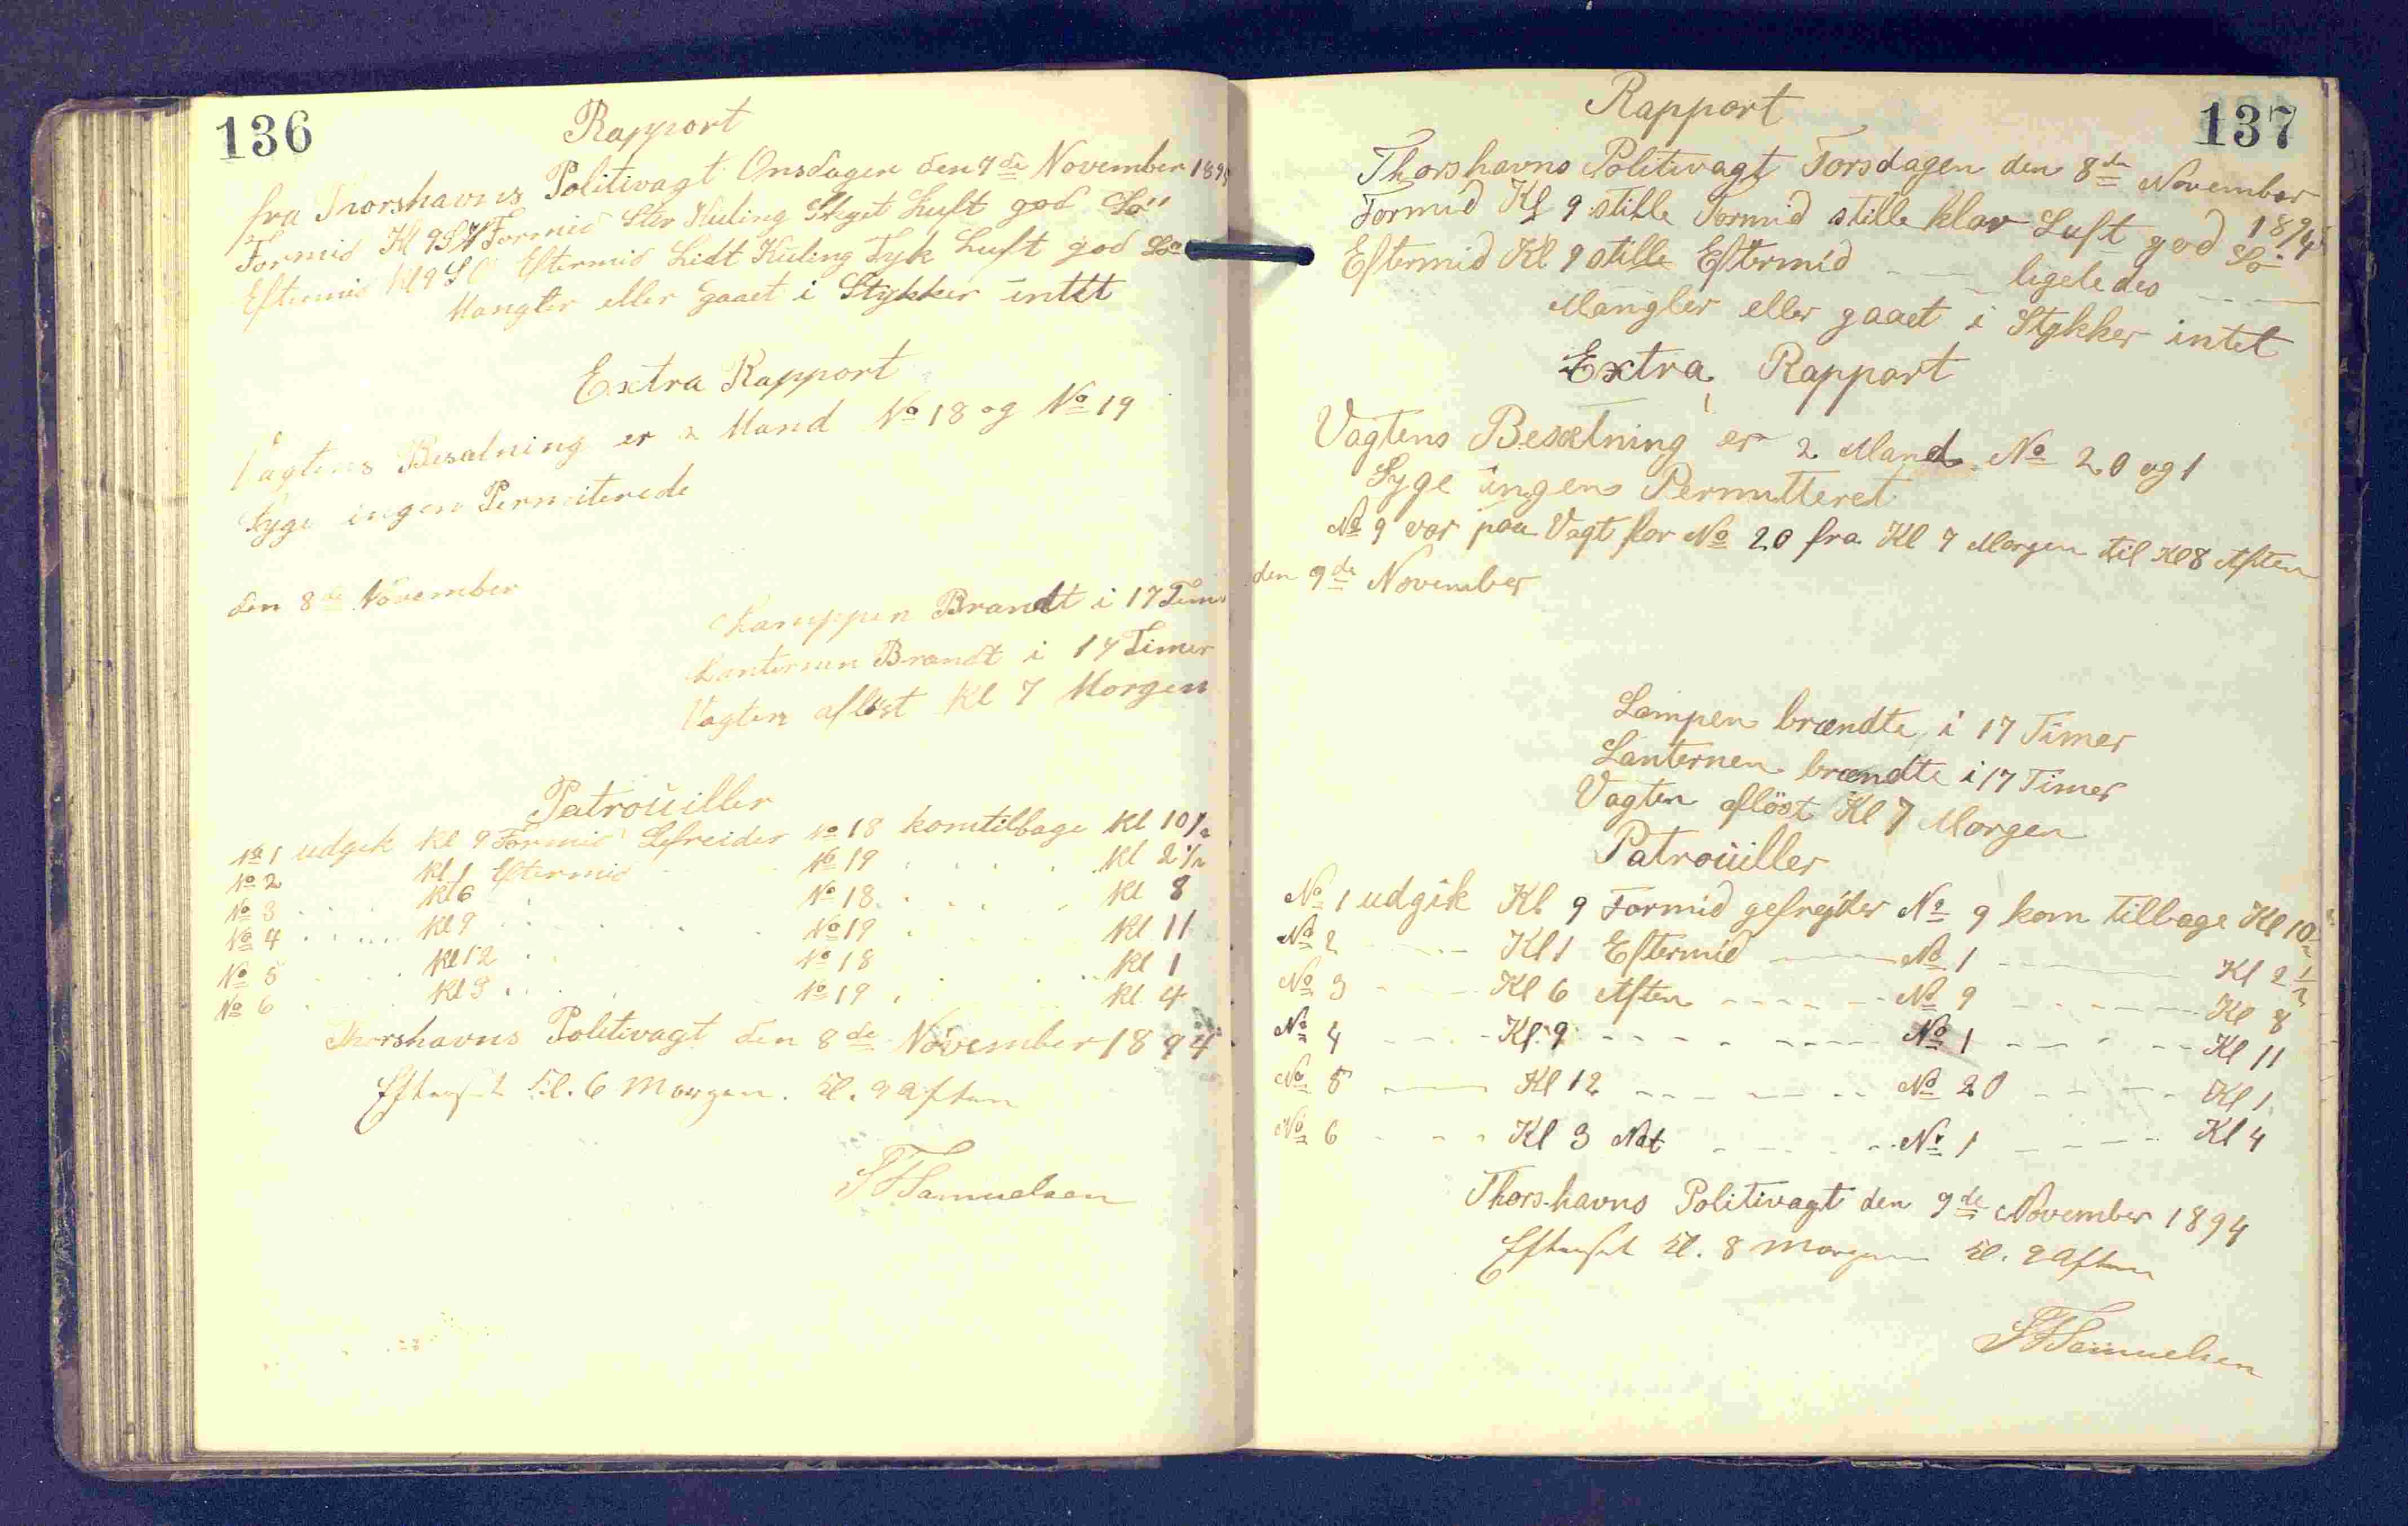 136
Rapport
fra Thorshavns Politivagt Onsdagen den 7de November 1894
Formid Kl 9 SV Formid Stor Kuling Skyet Luft god Sö
Eftermid Kl 9 SO Eftermid Lidt Kuling Tyk Luft god Sö
Mangler eller gaaet i Stykker intet
Extra Rapport
Vagtens Besætning er 2 Mand No 18 og No 19
Syge ingen Permiterede
den 8de November
Lamppen Brandt i 17 Timer
Lanternen Brandt i 17 Timer
Vagten aflöst Kl 7 Morgen
Patrouiller
No 1 udgik Kl 9 Formid Gefreider No 18 kom tilbage Kl 10½
No 2 Kl 1 Eftermid No 19 Kl 2½
No 3 Kl 6 No 18 Kl 8
No 4 Kl 9 No 19 Kl 11
No 5 Kl 12 No 18 Kl 1
No 6 Kl 3 No 19 Kl 4
Thorshavns Politivagt den 8de November 1894
Efterset Kl. 6 Morgen. Kl. 9 Aften
Samuelsen
137
Rapport
Thorshavns Politivagt Torsdagen den 8de November
1894
Formid Kl 9 stille Formid stille klar Luft god Sö
Eftermid Kl 9 stille Eftermid - - ligeledes - - -
Mangler eller gaaet i Stykker intet
Extra Rapport
Vagtens Besætning er 2 Mand No 20 og 1
Syge ingens Permitteret
No 9 var paa Vagt for No 20 fra Kl 7 Morgen til Kl 8 Aften
den 9de November
Lampen brændte i 17 Timer
Lanternen brændte i 17 Timer
Vagten aflöst Kl 7 Morgen
Patrouiller
No 1 udgik Kl 9 Formid gefrejder No 9 kom tilbage Kl 10½
No 2 Kl 1 Eftermid No 1 Kl 2½
No 3 Kl 6 Aften No 9 Kl 8
No 4 Kl 9 No 1 Kl 11
No 5 Kl 12 No 20 Kl 1
No 6 Kl 3 Nat No 1 Kl 4
Thorshavns Politivagt den 9de November 1894
Efterset Kl. 8 Morgen Kl. 9 Aften
Samuelsen